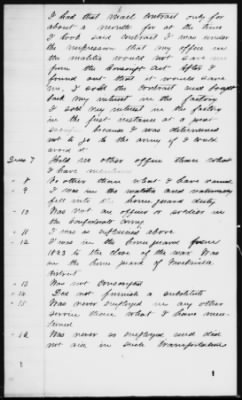 I had that mail contract only for
about a month for at the time
I took said contract I was under
the impression that my office in
the militia would not save me
from the conscript act. After I
found out that it would save
me, I sold the contract and bought
back my interest in the factory.
I sold my interest in the factory
in the first instance at a
because I was determined
not to go to the army if I could
avoid it
Ques 7 Held no other office than what
I have
" 8 No other than what I have named
" 9 I was in the militia and
fell into home guard duty
" 10 Was not an officer or soldier in
the Confederate Army
" 11 I was as expressed above
" 12 I was in the home guard from
1863 to the close of the war. Was
in the home guard of
district
" 13 Was not conscripted
" 14 Did not furnish a substitute
" 15 Was never employed in any other
service than what I have men-
tioned
" 16 Was never so employed and did
not aid in such transportation